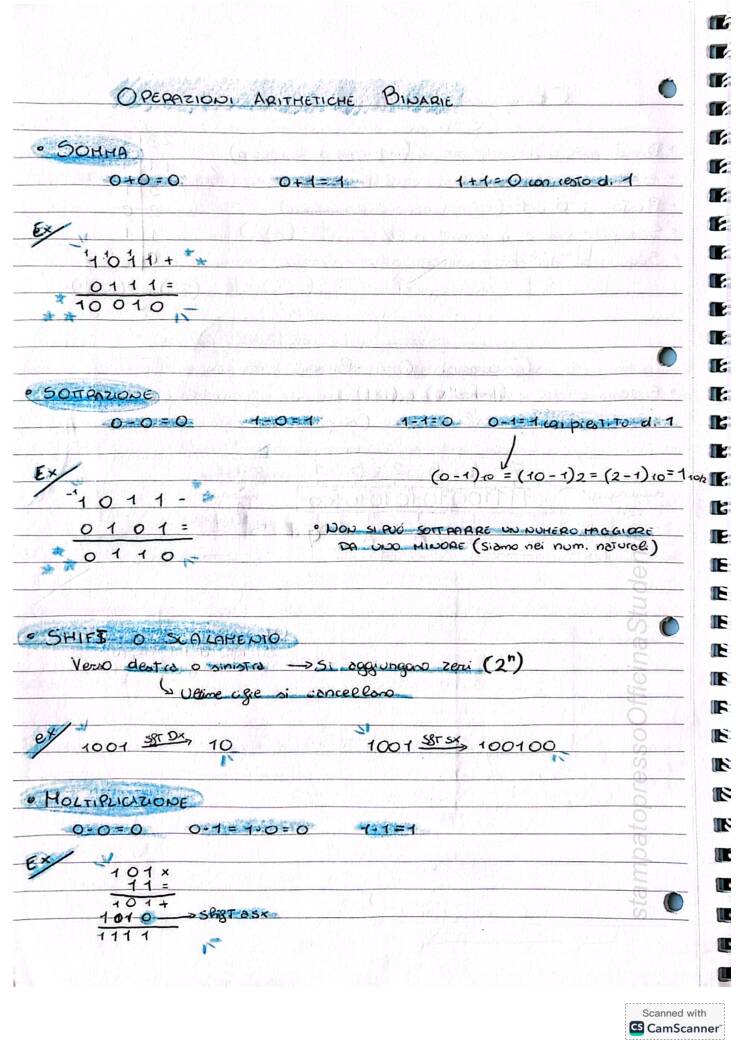 OPERAZIONI ARITMETICHE BINARIE
• SOMMA
0+0=0 0+1=1 1+1=0 con resto di 1
Ex
1 1 1
1 0 1 1 +
0 1 1 1 =
1 0 0 1 0
• SOTTRAZIONE
0-0=0 1-0=1 1-1=0 0-1=1 con prestito di 1
(0-1)10 = (10-1)2 = (2-1)10 = 1 10/2
Ex
-1
1 0 1 1 -
0 1 0 1 =
0 1 1 0
• NON SI PUÒ SOTTRARRE UN NUMERO MAGGIORE
DA UNO MINORE (siamo nei num. naturali)
• SHIFT O SCALAMENTO
Verso destra o sinistra → Si aggiungono zeri (2ⁿ)
↳ Ultime cifre si cancellano
ex
1001 SHIFT DX → 10 1001 SHIFT SX → 100100
• MOLTIPLICAZIONE
0·0=0 0·1=1·0=0 1·1=1
Ex
1 0 1 ×
1 1 =
1 0 1 +
1 0 1 0 → SHIFT a sx
1 1 1 1
stampatopressoOfficinaStudenti
Scanned with
CS CamScanner